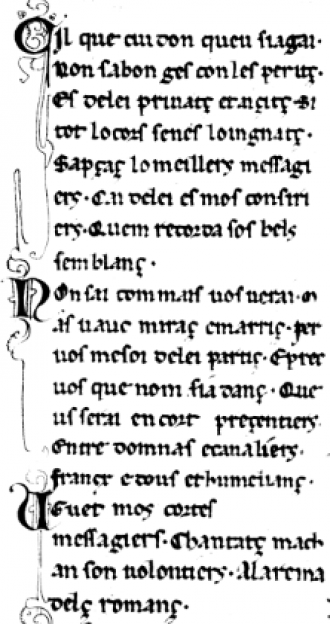 Cil que cuidon queu siagai·
Non sabon ges con les peritz·
Es delei priuatz etaizitz· Si
tot lo cors senes loingnatz·
Sapçaç lo meillers messagi
ers· Cai delei es mos consiri
ers· Quem recorda sos bels
semblanç·
Non sai com mais uos uerai· M
as uauc miraç emarriç· per
uos mesoi delei partiç· E per
uos que nom sia danç· Que
us serai en cort preçentiers
Entre domnas ecaualiers·
francç edous ethumeilianç·
Uguet mos cortes
messagiers· Chantatç mach
an son uolontiers· Alareina
delç romanç·